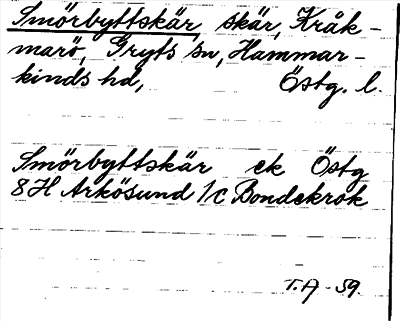 Smörbyttskär, skär, Kråk-
marö, Gryts sn, Hammar-
kinds hd, Östg. l.
Smörbyttskär ek Östg
8H Arkösund 1/c Bondekrok
T.A-59.